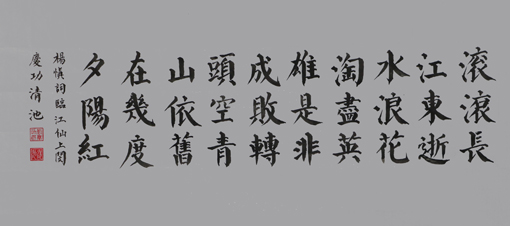 滾滾長
江東逝
水浪花
淘盡英
雄是非
成敗轉
頭空青
山依舊
在幾度
夕陽紅
楊慎詞臨江仙上闋
慶功清池